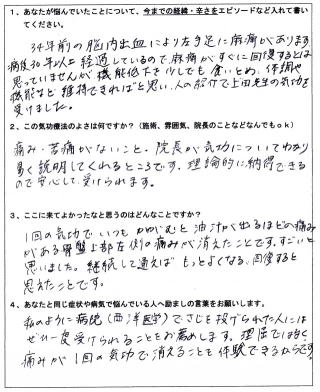 1、あなたが悩んでいたことについて、今までの経緯・辛さをエピソードなど入れて書い
てください。
34年前の脳内出血により左手足に麻痺があります
病後30年以上経過しているので、麻痺がすぐに回復するとは
思っていませんが機能低下を少しでも食いとめ、体調や
機能など維持できればと思い、人の紹介で上田先生の気功を
受けました。
2、この気功療法のよさは何ですか？（施術、雰囲気、院長のことなどなんでもok）
痛み・苦痛がないこと。院長が気功についてわかり
易く説明してくれるところです。理論的に納得できる
ので安心して受けられます。
3、ここに来てよかったなと思うのはどんなことですか？
1回の気功でいつもかがむと油汁が出るほどの痛み
がある骨盤上部左側の痛みが消えたことです。すごいと
思いました。継続して通えばもっとよくなる、回復すると
思えたことです。
4、あなたと同じ症状や病気で悩んでいる人へ励ましの言葉をお願いします。
私のように病院（西洋医学）でさじを投げられた人には
ぜひ一度受けられることをお薦めします。理屈ではなく
痛みが1回の気功で消えることを体験できるからです。